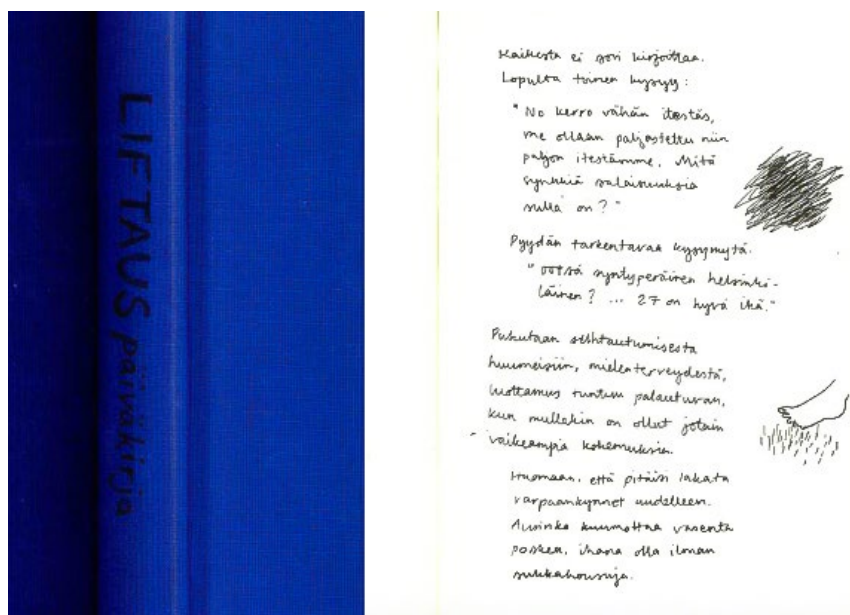 LIFTAUS päiväkirja
Kaikesta ei sovi kirjoittaa.
Lopulta toinen kysyy:
"No kerro vähän itestäs,
me ollaan paljastettu niin
paljon itestämme. Mitä
synkkiä salaisuuksia
sulla on?"
Pyydän tarkentavaa kysymystä.
"ootsä syntyperäinen helsinki-
läinen? ... 27 on hyvä ikä."
Puhutaan suhtautumisesta
huumeisiin, mielenterveydestä,
luottamus tuntuu palautuvan,
kun mullakin on ollut jotain
vaikeampia kokemuksia.
Huomaan, että pitäisi lakata
varpaankynnet uudelleen.
Aurinko kuumottaa vasenta
poskea, ihana olla ilman
sukkahousuja.